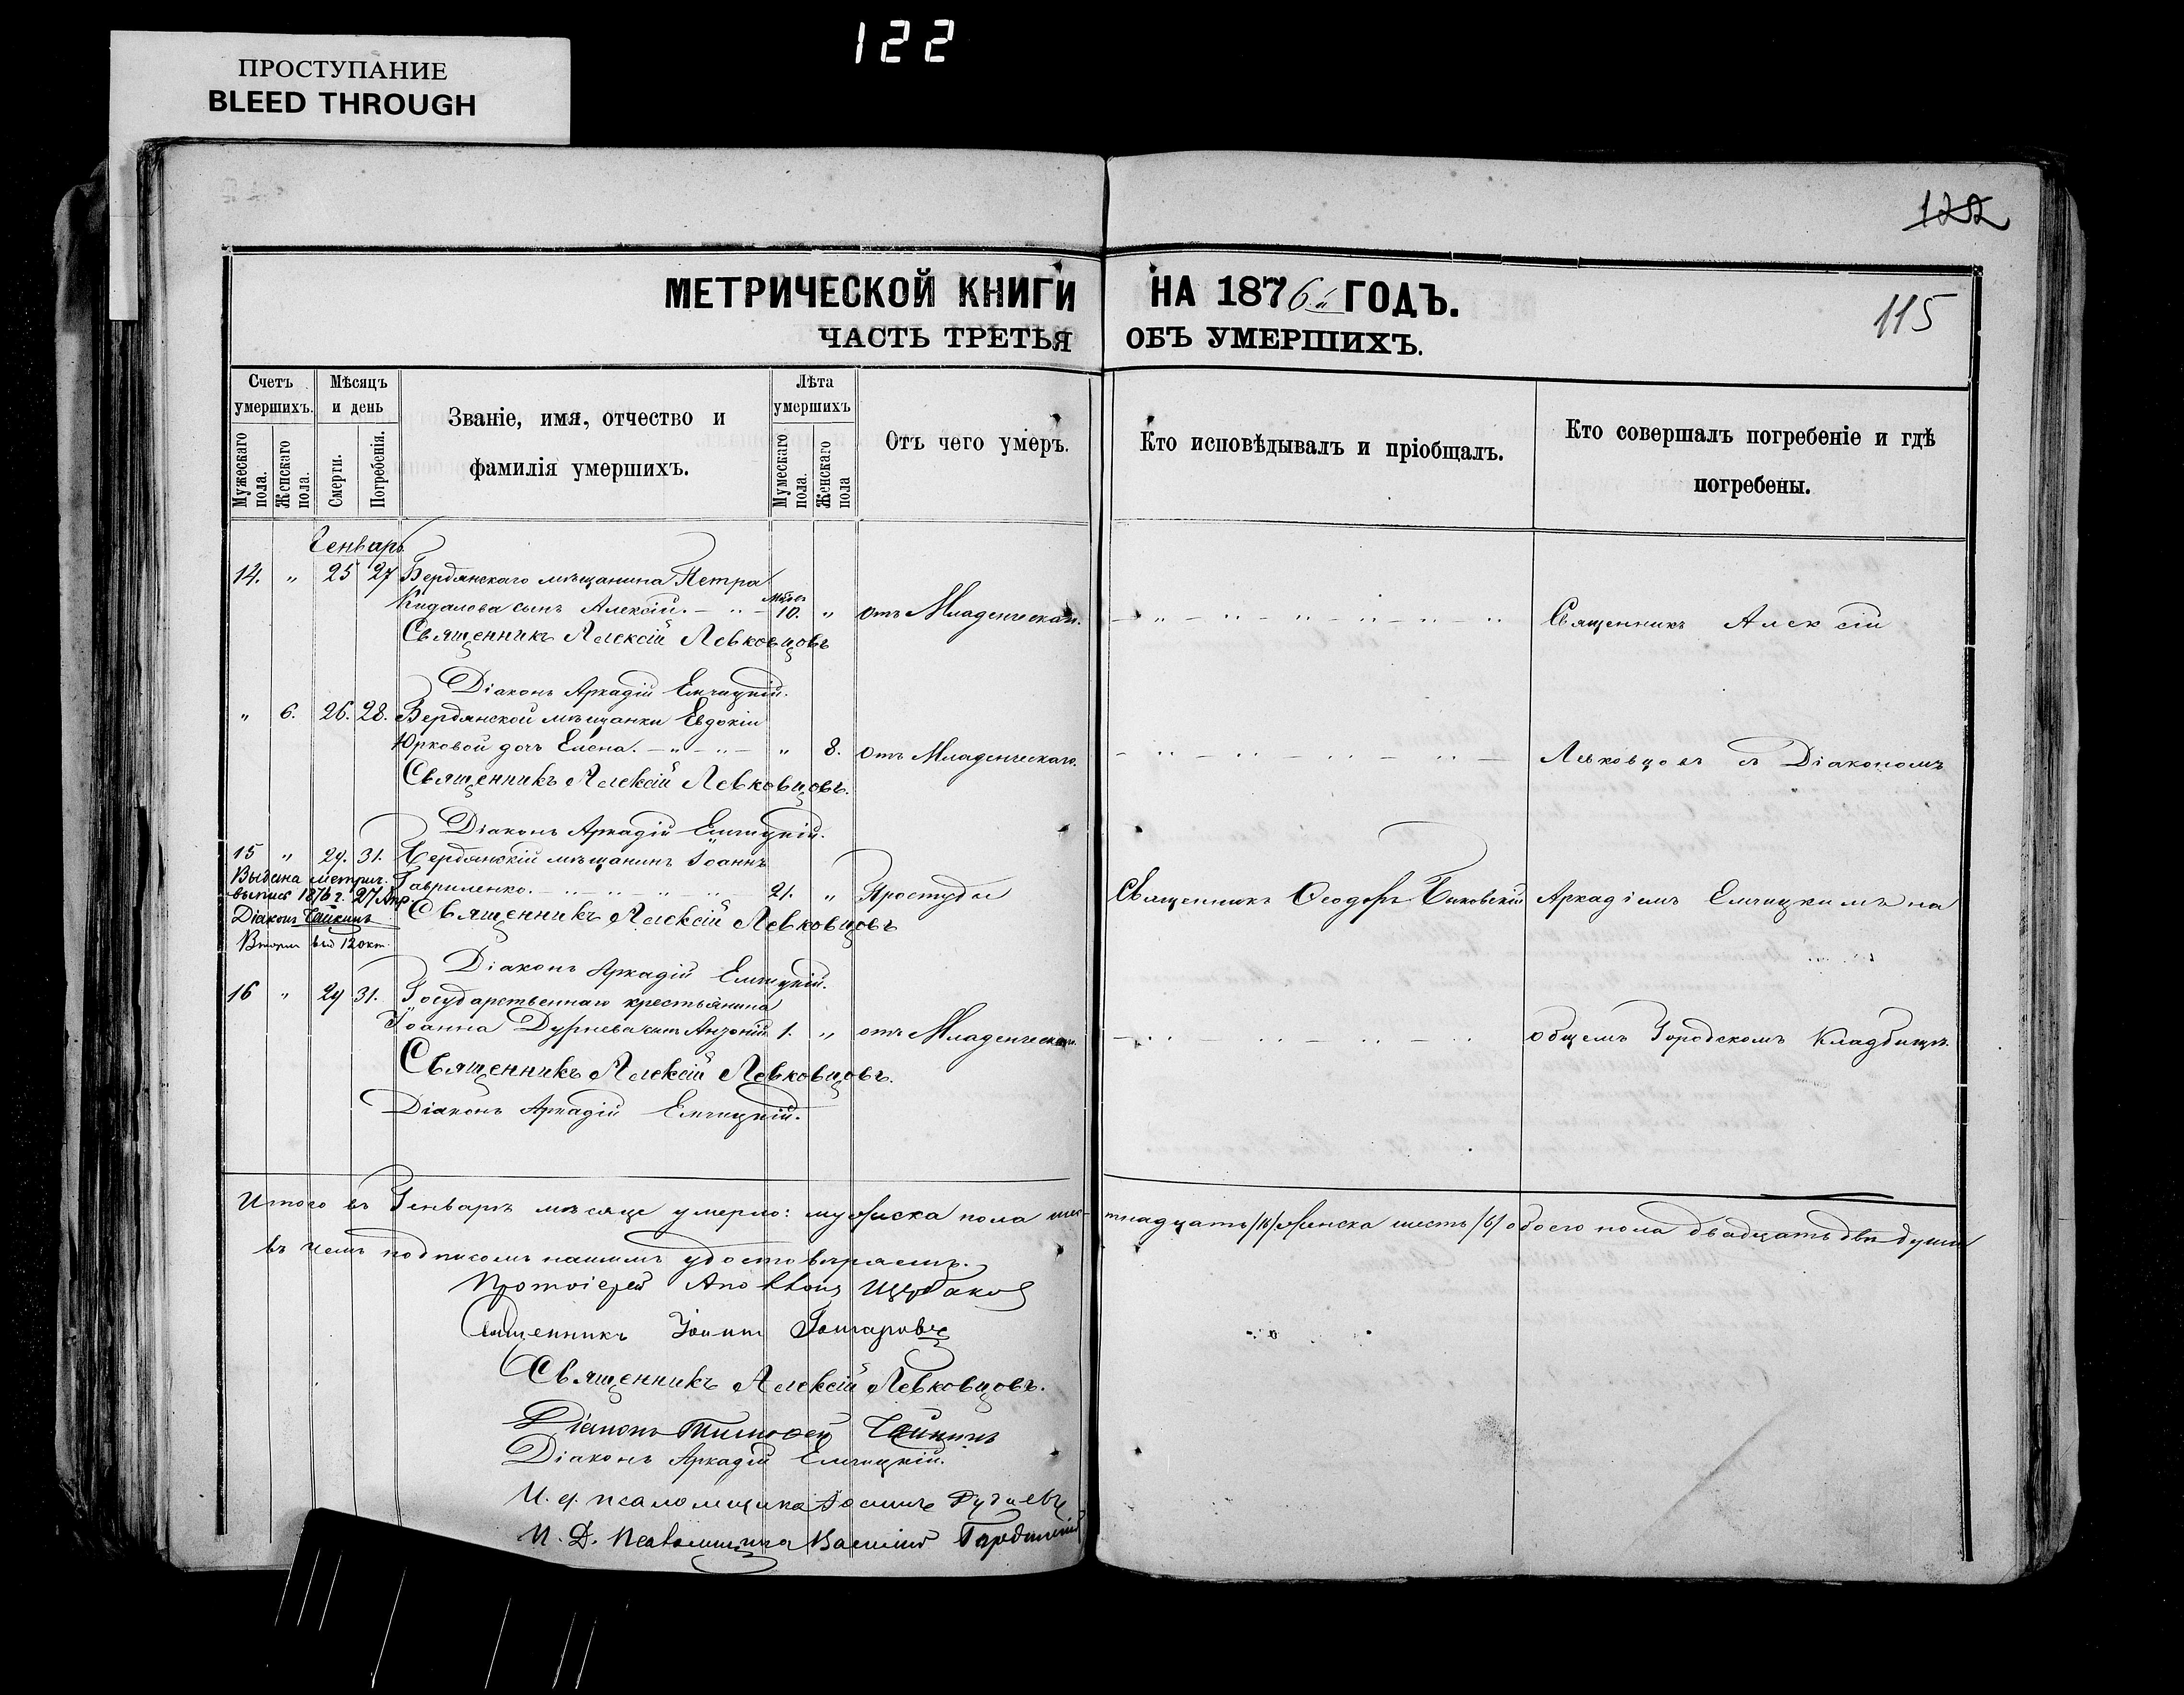 122
ПРОСТУПАНИЕ
BLEED THROUGH
122
115
МЕТРИЧЕСКОЙ КНИГИ НА 1876й ГОДЪ.
ЧАСТЬ ТРЕТЬЯ ОБЪ УМЕРШИХЪ.
Счетъ умершихъ.
Мужескаго пола.
Женскаго пола.
Мѣсяцъ и день
Смерти.
Погребенія.
Званіе, имя, отчество и
фамилія умершихъ.
Лѣта умершихъ
Мужескаго пола.
Женскаго пола
Отъ чего умеръ.
Кто исповѣдывалъ и пріобщалъ.
Кто совершалъ погребеніе и гдѣ
погребены.
Генварь
14. " 25 27 Бердянскаго мѣщанина Петра
Кидалова сынъ Алексій. 10. " отъ Младенческаго. Священникъ Алексій
Священникъ Алексій Левковцовъ
Діаконъ Аркадій Емчицкій.
" 6. 26. 28. Бердянской мѣщанки Евдокіи
Юрковой дочь Елена. " 8. отъ Младенческаго. Левковцовъ съ Діакономъ
Священникъ Алексій Левковцовъ.
Діаконъ Аркадій Емчицкій.
15 " 29. 31. Бердянскій мѣщанинъ Іоаннъ
Гавриленко. 21. " Простуды Священникъ Ѳеодоръ Быковскій Аркадіемъ Емчицкимъ на
Выдана метрич.
выпись 1876 г. 27 Апр
Діаконъ Чайкинъ
Священникъ Алексій Левковцовъ
Діаконъ Аркадій Емчицкій.
16 " 29 31. Государственнаго крестьянина
Іоанна Дурнева сынъ Антоній 1. " отъ Младенческаго. общемъ Городскомъ Кладбищѣ.
Священникъ Алексій Левковцовъ.
Діаконъ Аркадій Емчицкій.
Итого въ Генварѣ мѣсяцѣ умерло: мужеска пола шестнадцать /16/ женска шесть /6/ обоего пола двадцать двѣ души
въ чемъ подписомъ нашимъ удостовѣряемъ.
Протоіерей Щербаковъ
Священникъ Іоаннъ Гончаровъ
Священникъ Алексій Левковцовъ.
Діаконъ Тимофей Чайкинъ
Діаконъ Аркадій Емчицкій.
И. д. псаломщика
И. Д. Псаломщика Василій